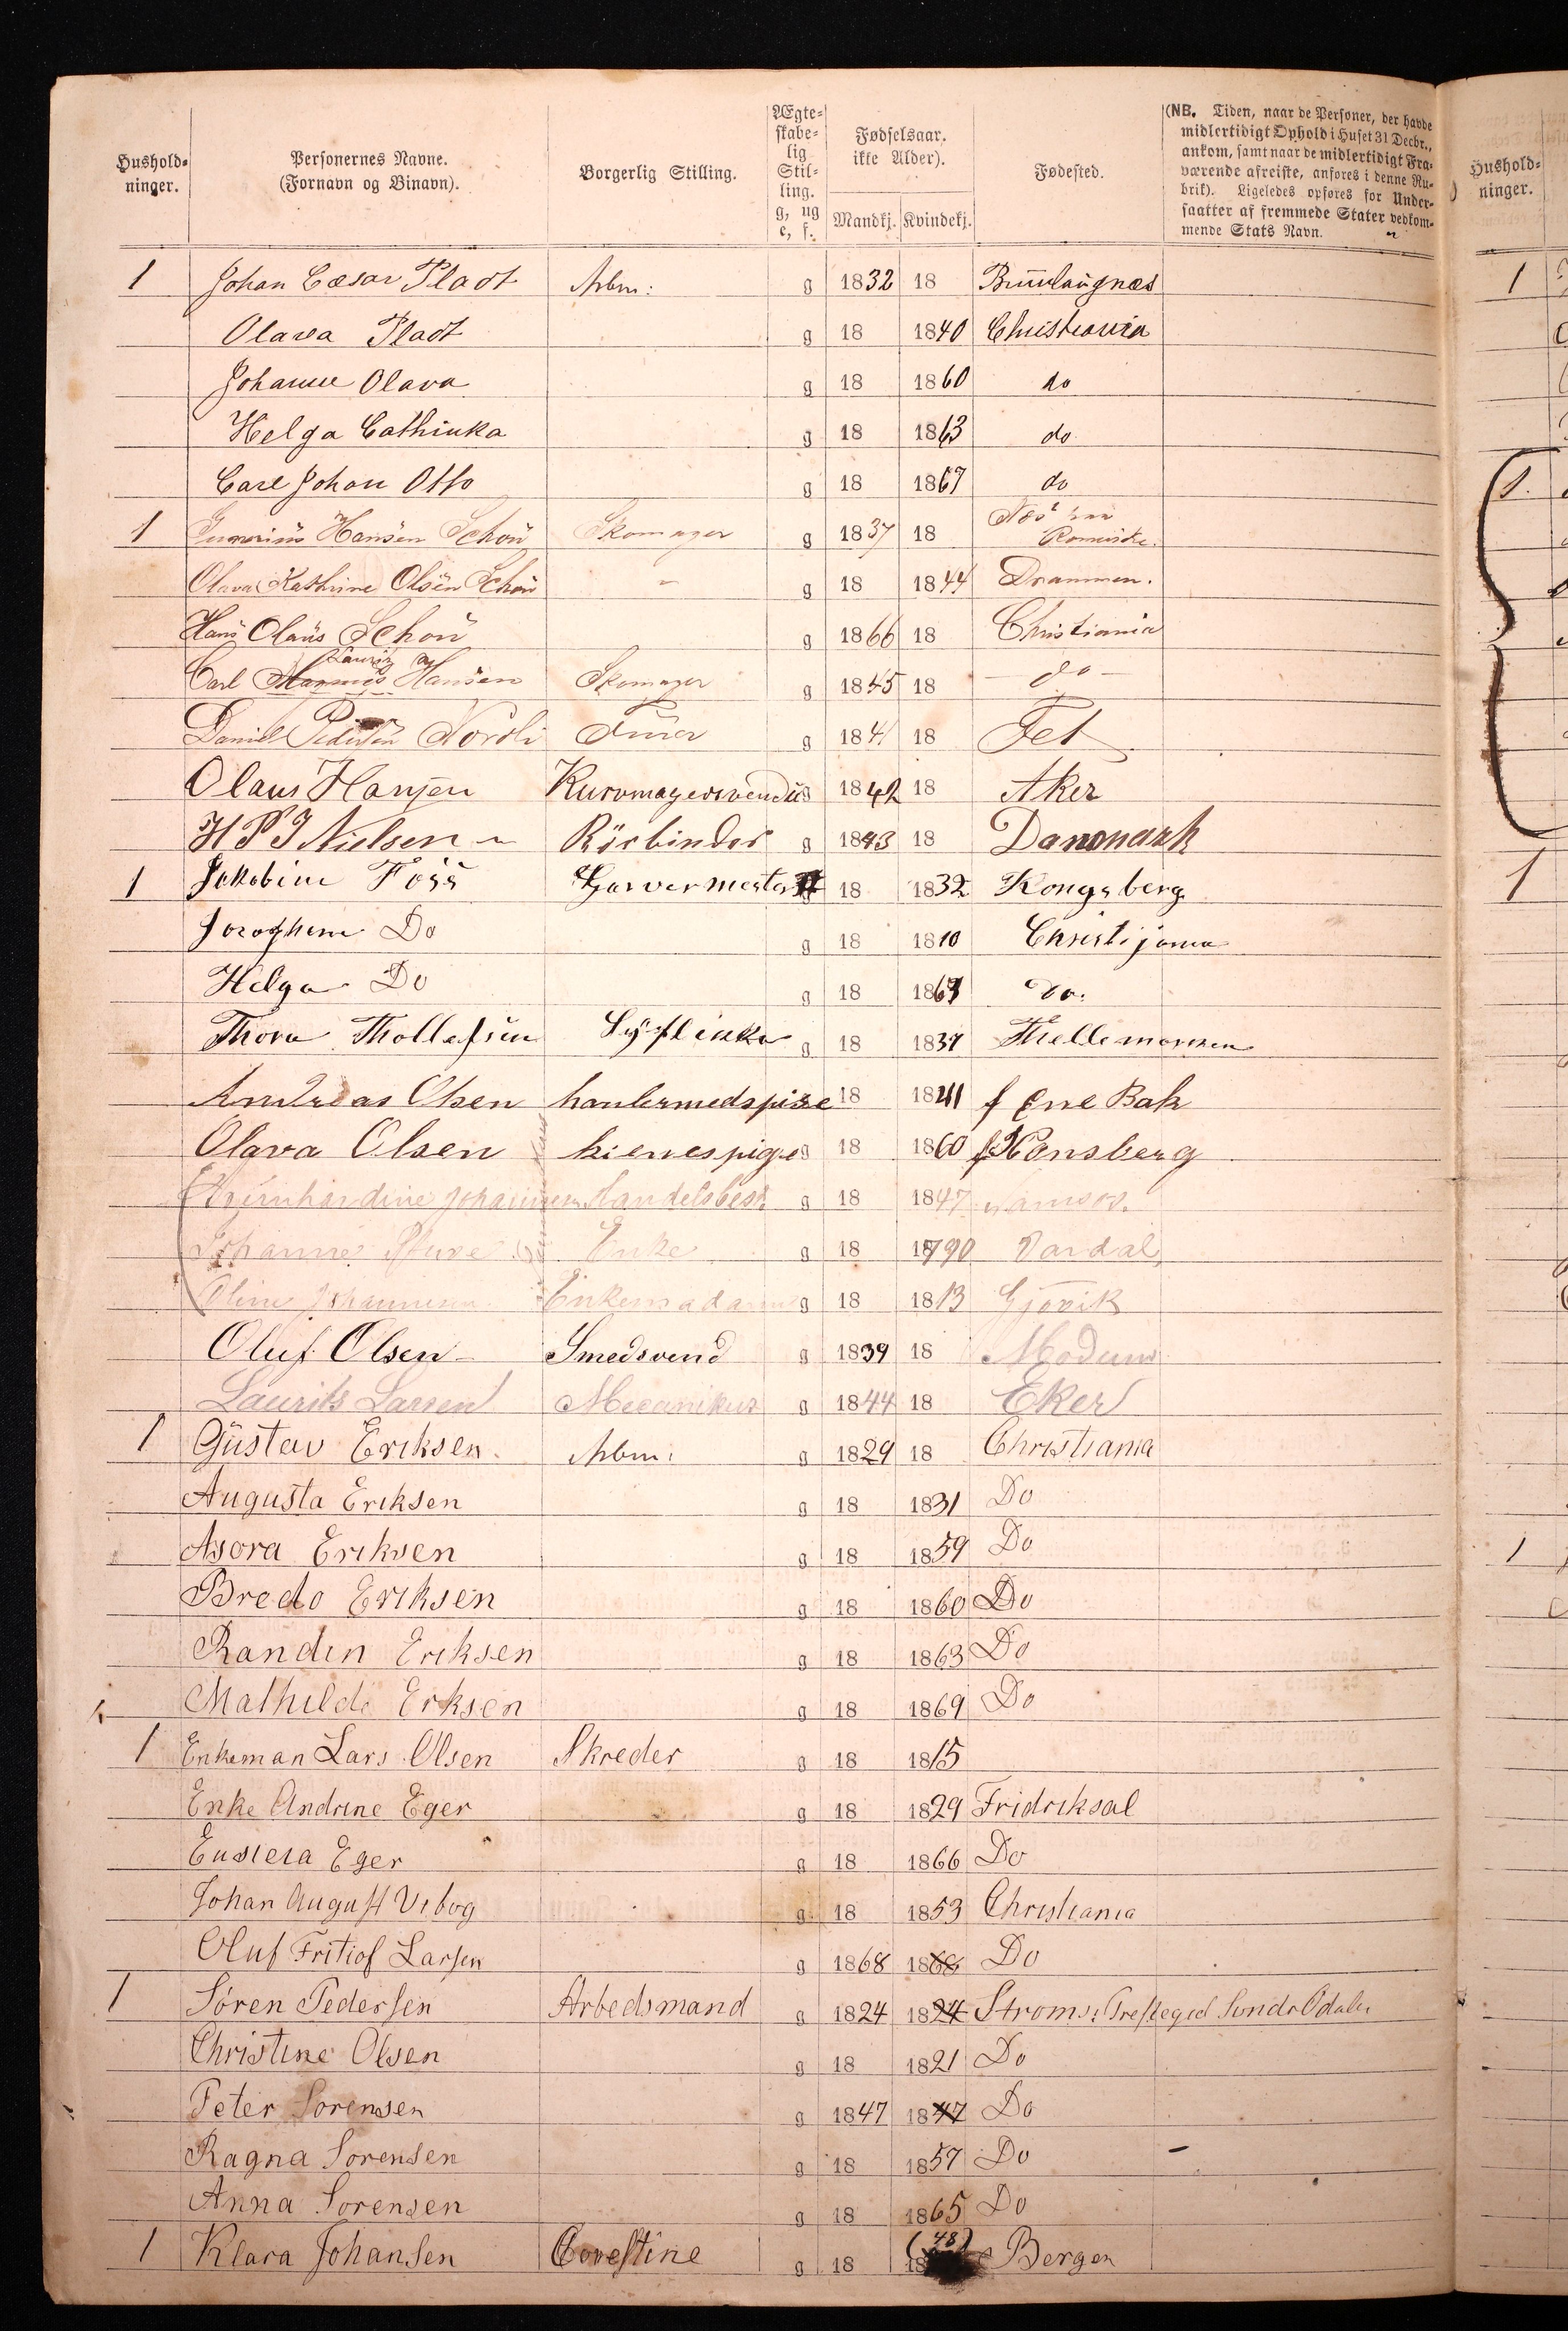 Hushold-
ninger.
Personernes Navne.
(Fornavn og Binavn).
Borgerlig Stilling.
Ægte-
skabe-
lig
Stil-
ling.
g, ug
e, f.
Fødselsaar.
ikke Alder).
Mandkj. Kvindekj.
Fødested.
(NB. Tiden, naar de Personer, der havde
midlertidigt Ophold i Huset 31 Decbr.,
ankom, samt naar de midlertidigt Fra-
værende afreiste, anføres i denne Ru-
brik). Ligeledes opføres for Under-
saatter af fremmede Stater vedkom-
mende Stats Navn.
Hushold-
ninger.
1 Johan Cæsar Pladt Arbm: g 1832 18 Brunlaugnæs
Olava Pladt g 18 1840 Christiania
Johanne Olava g 18 1860 do
Helga Cathinka g 18 1863 do
Carl Johan Otto g 18 1867 do
1 Gunerius Hansen Schou Skomager g 1837 18 Næs Romerike.
Olava Kathrine Olsen Schou g 18 1844 Drammen.
Hans Olaus Schou g 1866 18 Christiania
Carl Lauritz Hansen Skomager g 1845 18 do
Daniel Pedersen Nordli g 1841 18 Fet
Olaus Hansen Kurvmagersvend g 1842 18 Aker
H P J Nielsen Börbinder g 1843 18 Danmark
1 Jakobine Foss Garvermester g 18 1832 Kongsberg
Do g 18 18 Christijania
Helga Do g 18 1867 do.
Thora Thollefsen g 18 1837 Thellemarken
Andreas Olsen g 18 1841 f Ene Bak
Olava Olsen tienespige g 18 1860 f Konsberg
Johannesen Handelsbest. g 18 1847 Namsos.
Johanne Enke g 18 1790 Vardal
Oline Johannesen Enkemadame g 18 1813 Gjøvik
Oluf Olsen Smedsvend g 1839 18 Modum
Laurits Larsen Mecanikus g 1844 18 Eker
1 Gustav Eriksen Arbm: g 1829 18 Christiania
Augusta Eriksen g 18 1831 Do
Asora Eriksen g 18 1859 Do
Bredo Eriksen g 18 1860 Do
Randin Eriksen g 18 1863 Do
Mathilde Erksen g 18 1869 Do
1 Enkeman Lars Olsen Skreder g 18 1815
Enke Andrine Eger g 18 1829 Fridriksal
Eger g 18 1866 Do
Johan August Vibog g 18 1853 Christiania
Oluf Fritiof Larsen g 1868 1868 Do
1 Sören Pedersen Arbedsmand g 1824 1824 Stroms. Presteged Sondr Odalen
Christine Olsen g 18 1821 Do
Peter Sorensen g 1847 1847 Do
Ragna Sorensen g 18 1857 Do
Anna Sorensen g 18 1865 Do
1 Klara Johansen g 18 18 (48) Bergen